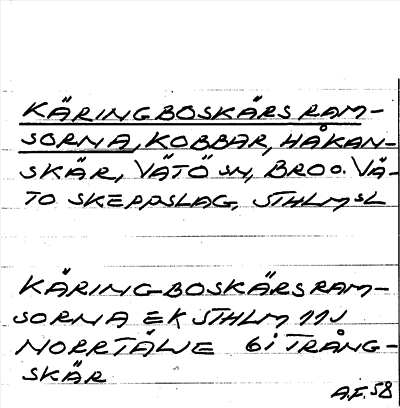 KÄRINGBOSKÄRSRAM-
SORNA, KOBBAR, HÅKAN-
SKÄR, VÄTÖ SN, BRO O. VÄ-
TO SKEPPSLAG, STHLMSL
KÄRINGBOSKÄRSRAM-
SORNA EK STHLM 11J
NORRTÄLJE 6i TRÅNG-
SKÄR
A.F. 58